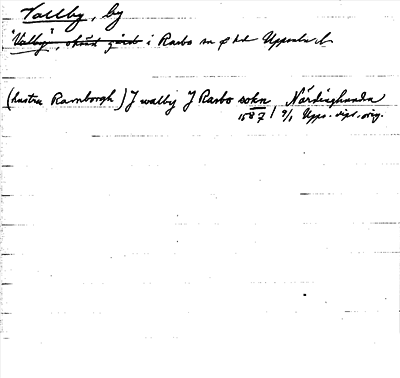 Vallby, by
"Valby", okänd gård i Rasbo sn o hd Uppsala l.
(hustru Ramborgh) J walby J Rasbo sokn, Nårdinghundra
1587 9/1 Upps. dipl. orig.